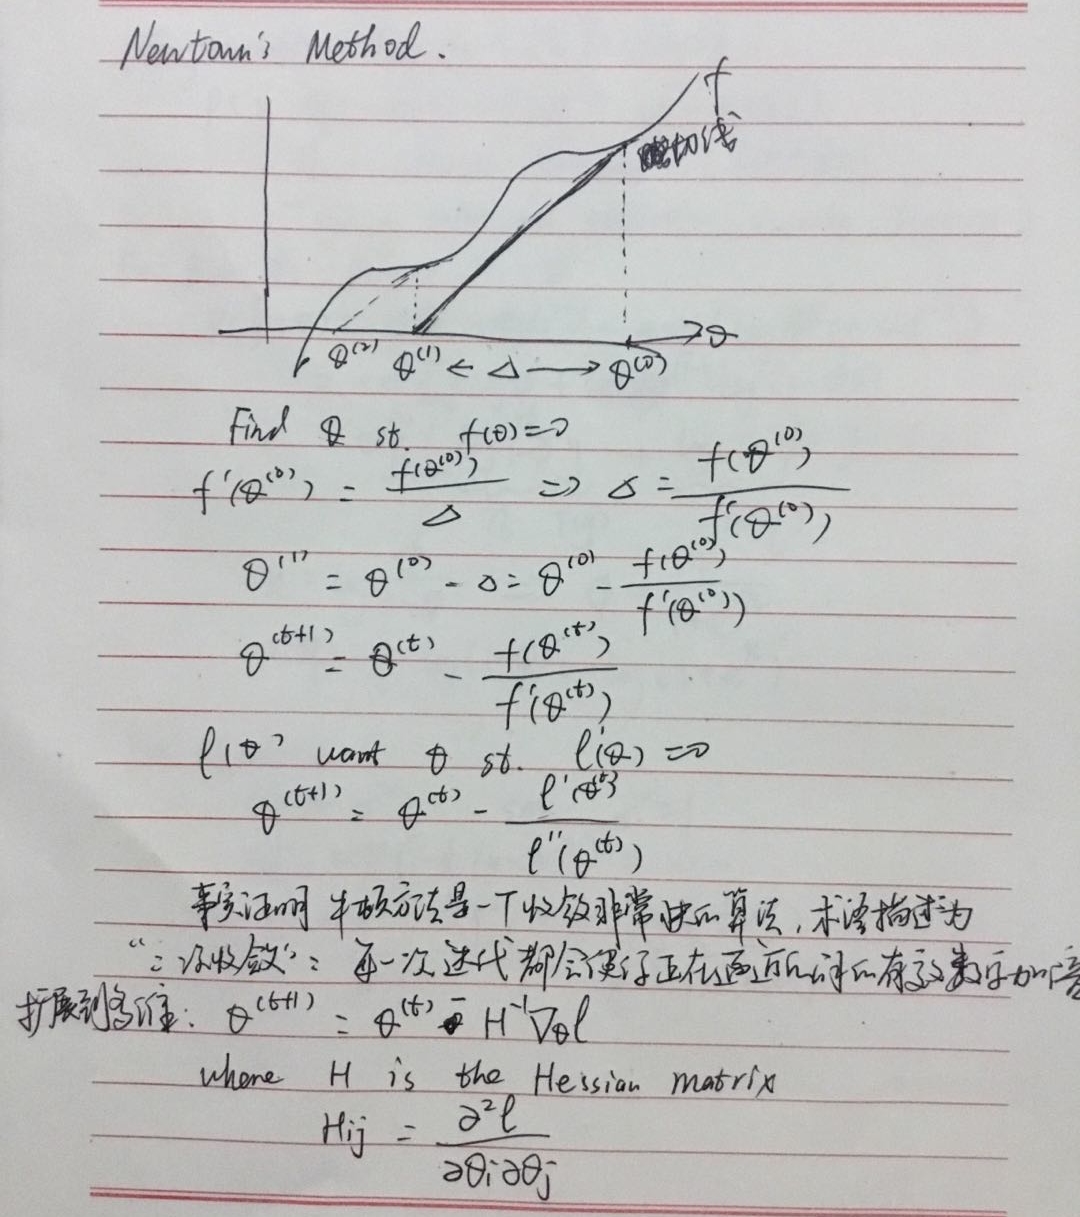 Newton's Method.
f
切线
θ^(2) θ^(1) ← Δ → θ^(0) → θ
Find θ st. f(θ)=0
f'(θ^(0)) = f(θ^(0)) / Δ => Δ = f(θ^(0)) / f'(θ^(0))
θ^(1) = θ^(0) - Δ = θ^(0) - f(θ^(0)) / f'(θ^(0))
θ^(t+1) = θ^(t) - f(θ^(t)) / f'(θ^(t))
l(θ) want θ st. l'(θ)=0
θ^(t+1) = θ^(t) - l'(θ^(t)) / l''(θ^(t))
事实证明 牛顿方法是一个收敛非常快的算法,术语描述为
“二次收敛”: 每一次迭代都会使得正在逼近的解的有效数字加倍
扩展到多维: θ^(t+1) = θ^(t) - H^-1 ∇θ l
where H is the Hessian matrix
Hij = ∂²l / ∂θi∂θj